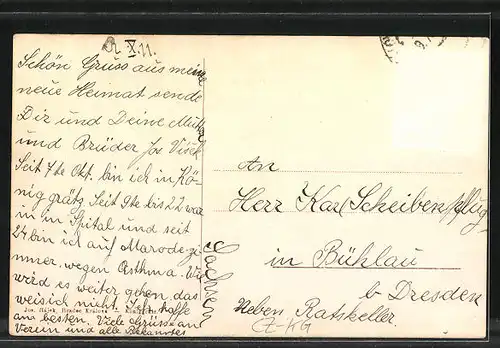 X. 11.
Schön Gruss aus meine
neue Heimat sende
Dir und Deine Mutter
und Brüder Jos
Seit 7te Okt. bin ich in Kö-
niggrätz. Seit 9te bis 22 war
in im Spital und seit
24 bin ich auf Marodezi-
mmer. wegen Asthma. Wie
wird es weiter gehen, das
weis ich nicht. Ich hoffe
am besten. Viele Grüsse an
Verein und alle Bekanntes
Jos. Hradec Králové
An
Herr Karl Scheibenpflug
in Bühlau
b Dresden
Neben Ratskeller.
Sachsen